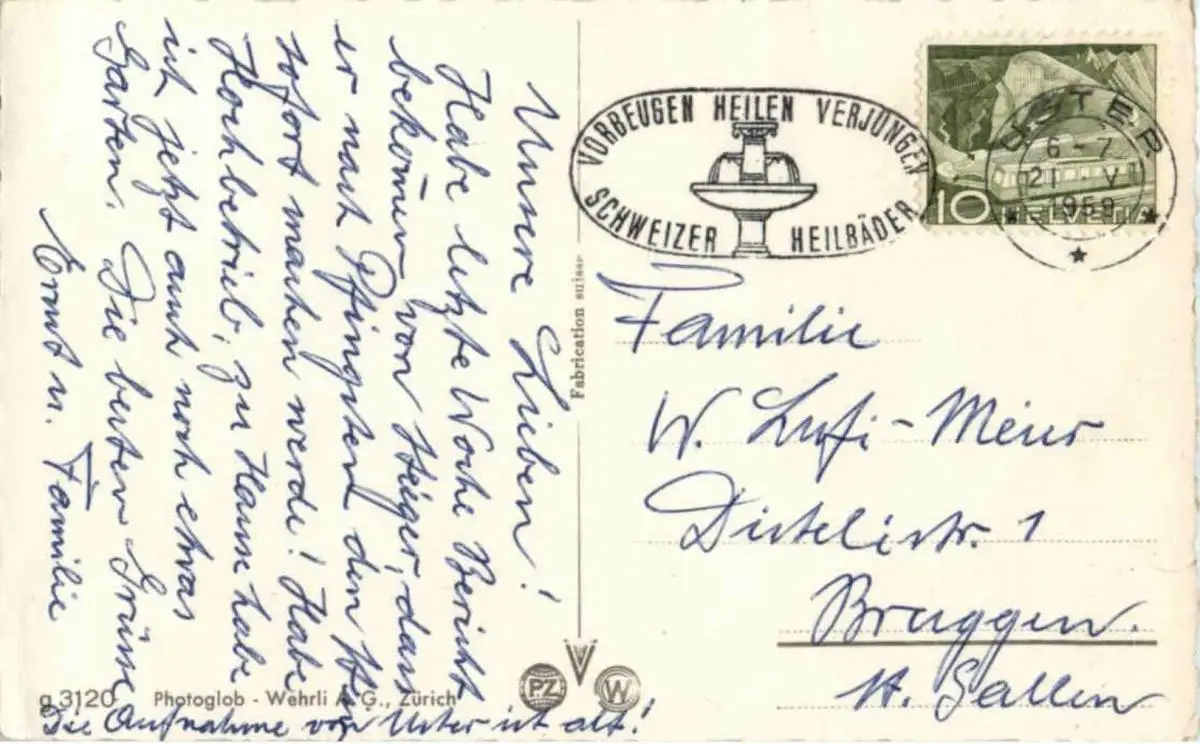 Unsere Lieben!
Habe letzte Woche Bericht
bekommen von Steiger, dass
er nach Pfingsten den
sofort machen werde! Habe
Hochbetrieb, zu Hause habe
ich jetzt auch noch etwas
Garten. Die besten Grüsse
Ernst u. Familie
Die Aufnahme von Uster ist alt!
VORBEUGEN HEILEN VERJÜNGEN
SCHWEIZER HEILBÄDER
USTER
6-7
21 V
1959
10 HELVETIA
Familie
W. Lufi-Meier
Distelistr. 1
Bruggen.
St. Gallen
Fabrication suisse
g 3120 Photoglob - Wehrli A.G., Zürich
PZ
W